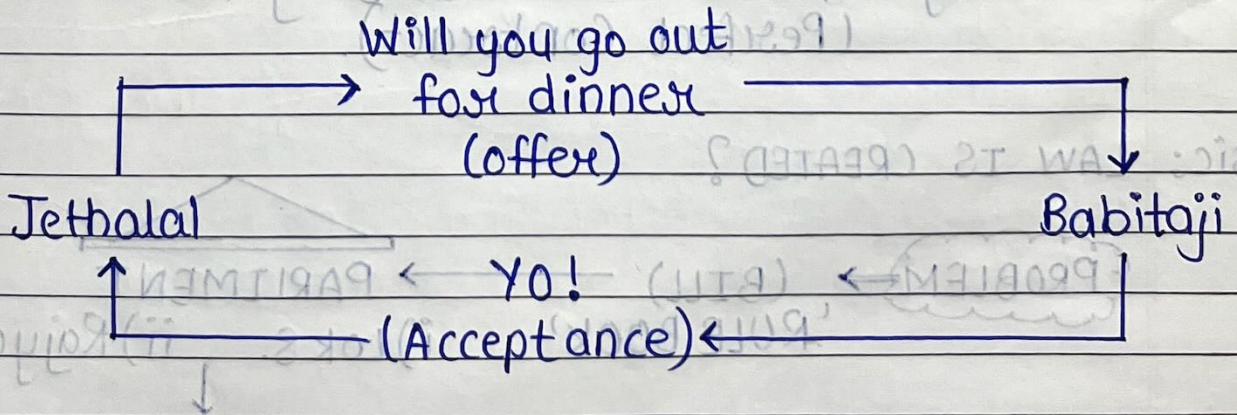 Will you go out
for dinner
(offer)
Jethalal
Babitaji
YO!
(Acceptance)